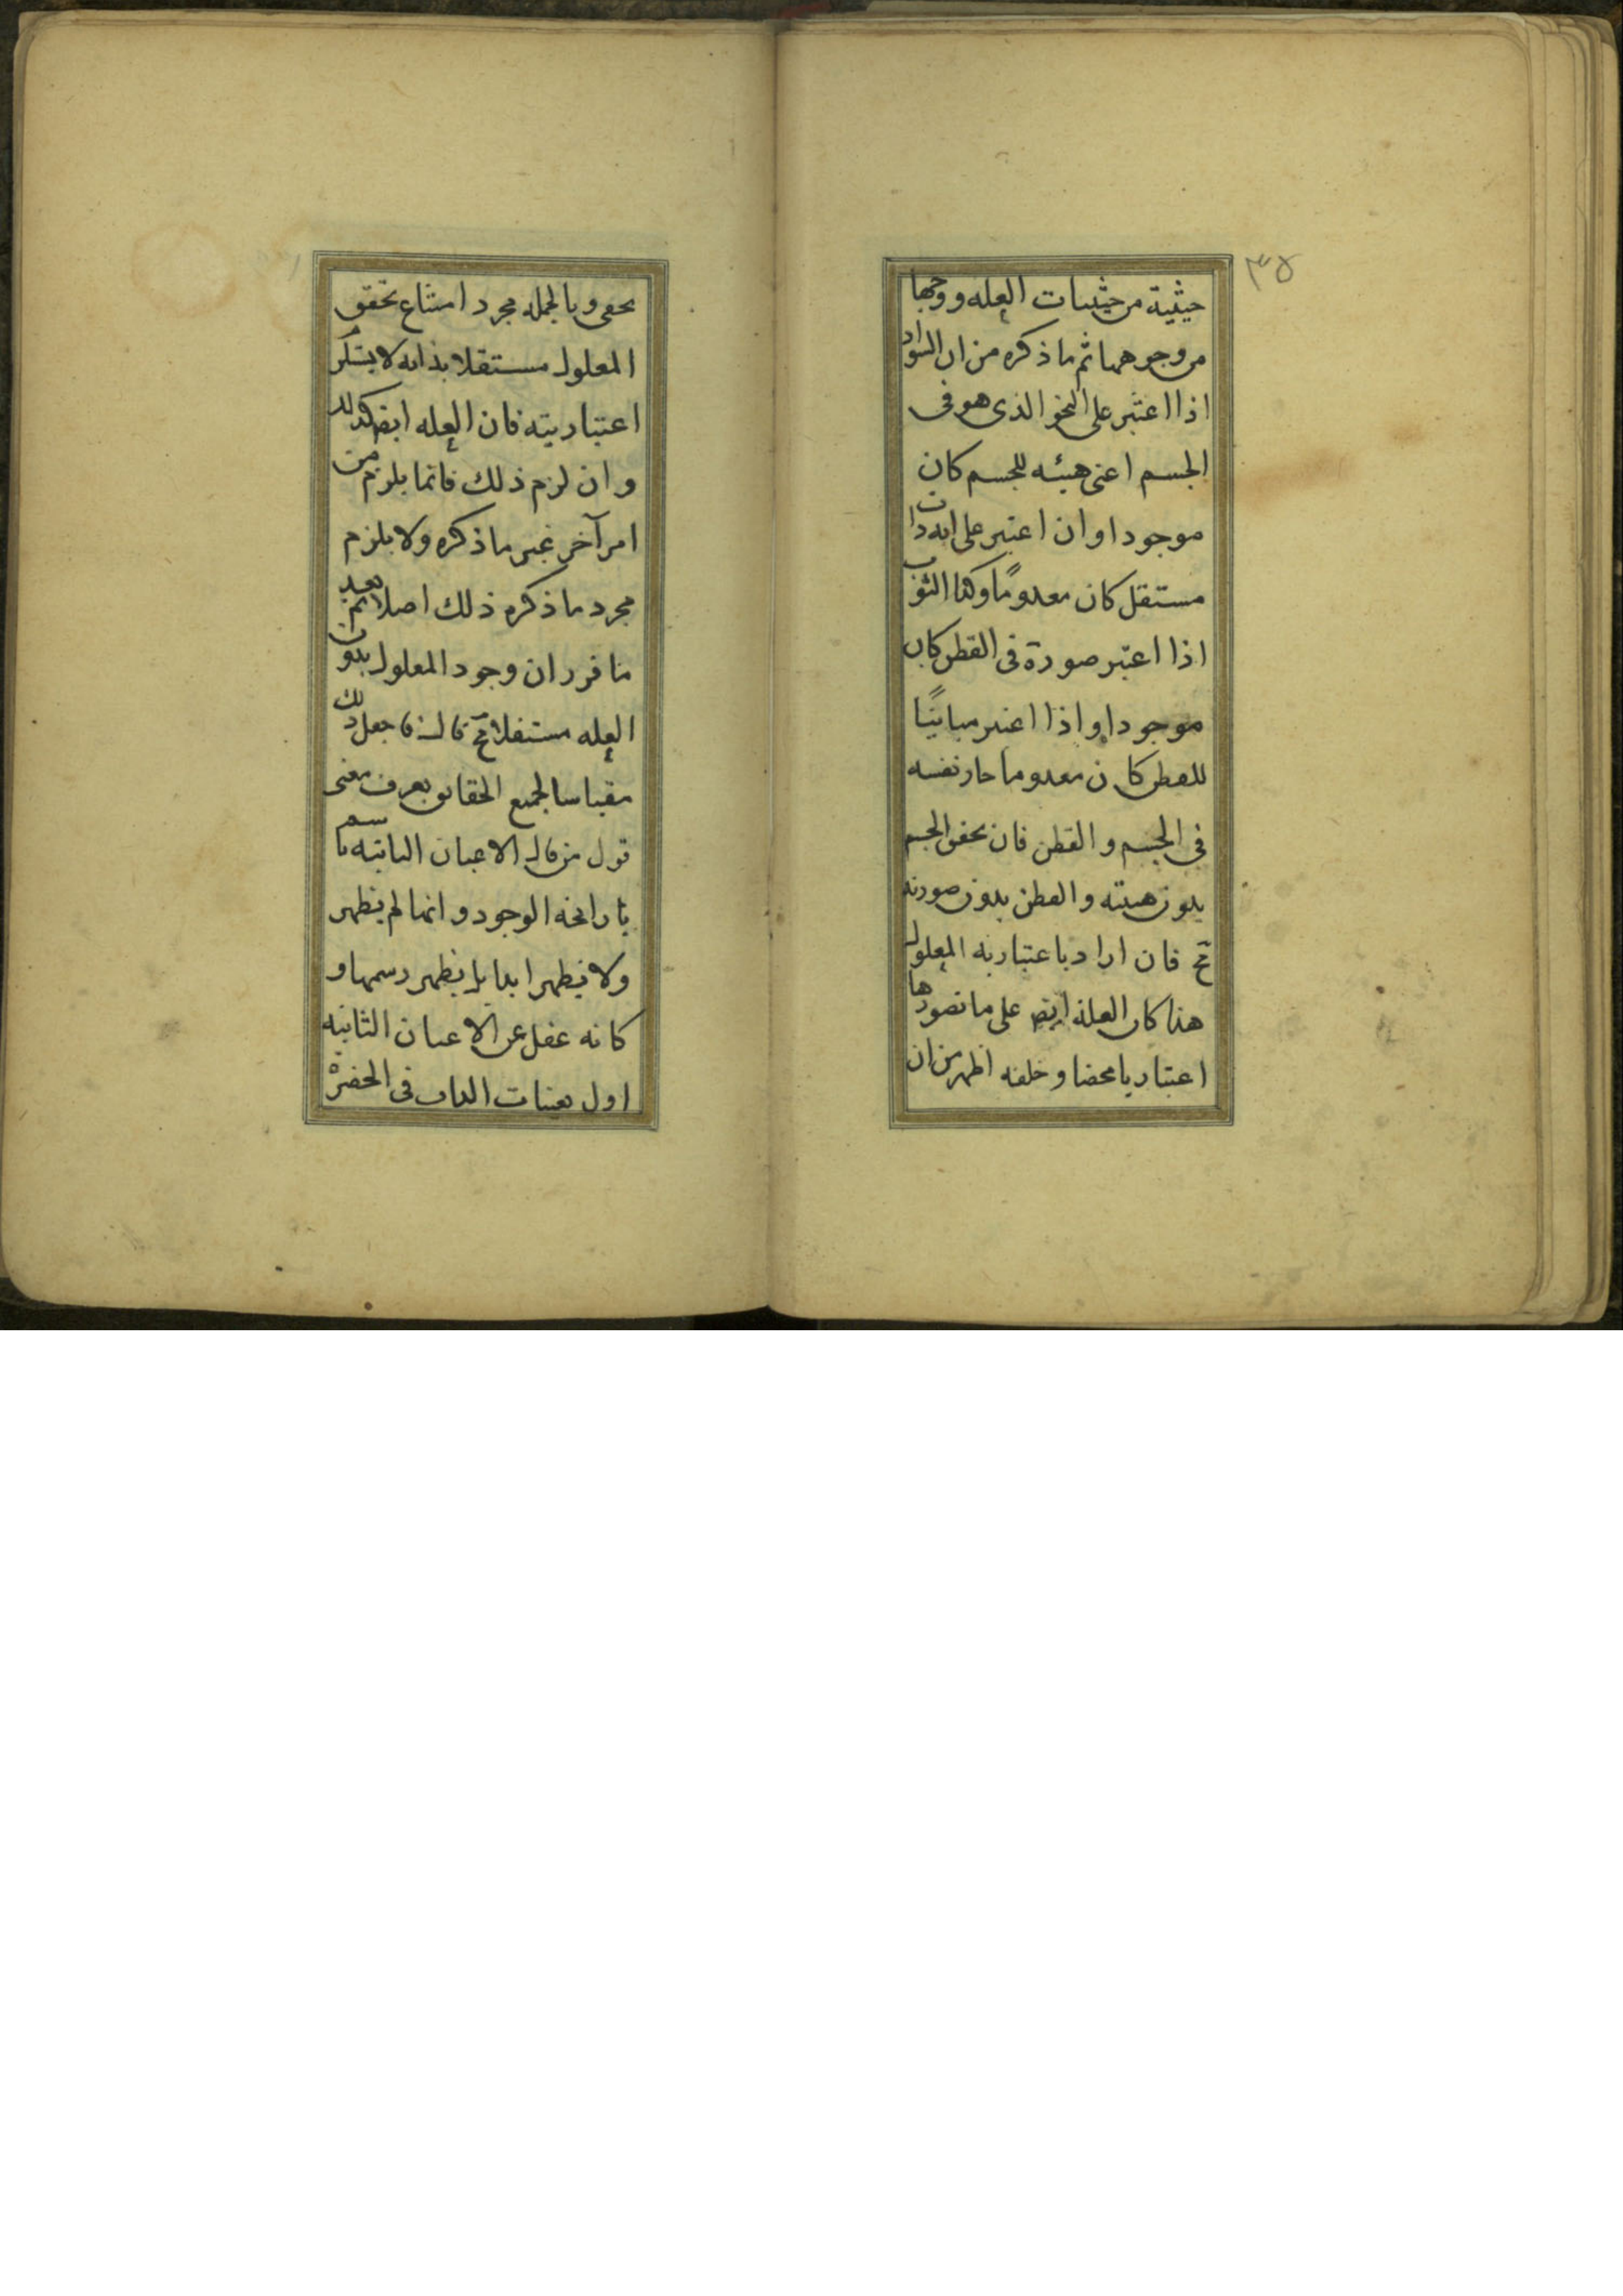 ٣٥
حيثية من حيثيات العله ووجها
من وجوهها ثم ما ذكره من ان السواد
اذا اعتبر على النحو الذى هو فى
الجسم اعنى هيئه للجسم كان
موجودا وان اعتبر على انه ذات
مستقل كان معدومًا وكذا الثوب
اذا اعتبر صورة فى القطن كان
موجودا واذا اعتبر مباينًا
للقطن كان معدوما جار نفسه
فى الجسم و القطن فان تحقق الجسم
بدون هيئته والقطن بدون صورته
مح فان اراد باعتباريه المعلول
هذا كان العلة ايض على ما تصورها
اعتباريا محضا وخلفه اظهر من ان
يخفى وبالجمله مجرد امتناع تحقق
المعلول مستقلا بذاته لا يستلزم
اعتباريته فان العله ايض كذلك
وان لزم ذلك فانما يلزم من
امر آخر غير ما ذكره ولا يلزم
مجرد ما ذكره ذلك اصلا ثم بعد
ما قرر ان وجود المعلول بدون
العله مستقلا مح قال فاجعل ذلك
مقياسا لجميع الحقائق يعرف معنى
قول من قال الاعيان الثابته ما
شمت رائحة الوجود وانها لم يظهر
ولا يظهر ابدا بل يظهر رسمها و
كانه غفل عن الاعيان الثابته
اول تعينات الذات فى الحضرة